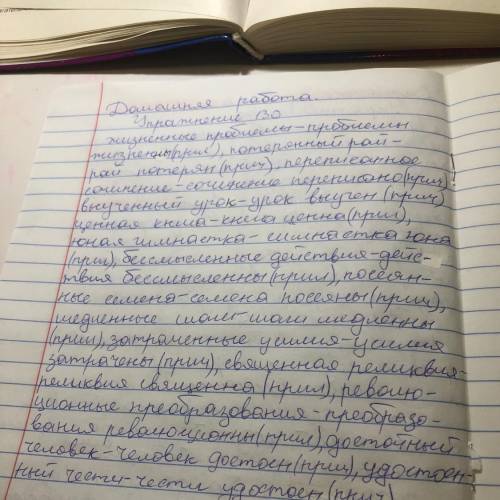 Домашняя работа.
Упражнение 130
жизненные проблемы-проблемы
жизненны(прил), потерянный рай-
рай потерян(прич), переписанное
сочинение-сочинение переписано(прич)
выученный урок-урок выучен(прич)
ценная книга-книга ценна(прил),
юная гимнастка-гимнастка юна
(прил), бессмысленные действия-дейс-
твия бессмысленны(прил), посеян-
ные семена-семена посеяны(прич),
медленные шаги-шаги медленны
(прил), затраченные усилия-усилия
затрачены(прич), священная реликвия-
реликвия священна(прил), револю-
ционные преобразования-преобразо-
вания революционны(прил), достойный
человек-человек достоен(прил), удостоен-
ный чести-чести удостоен(прич)